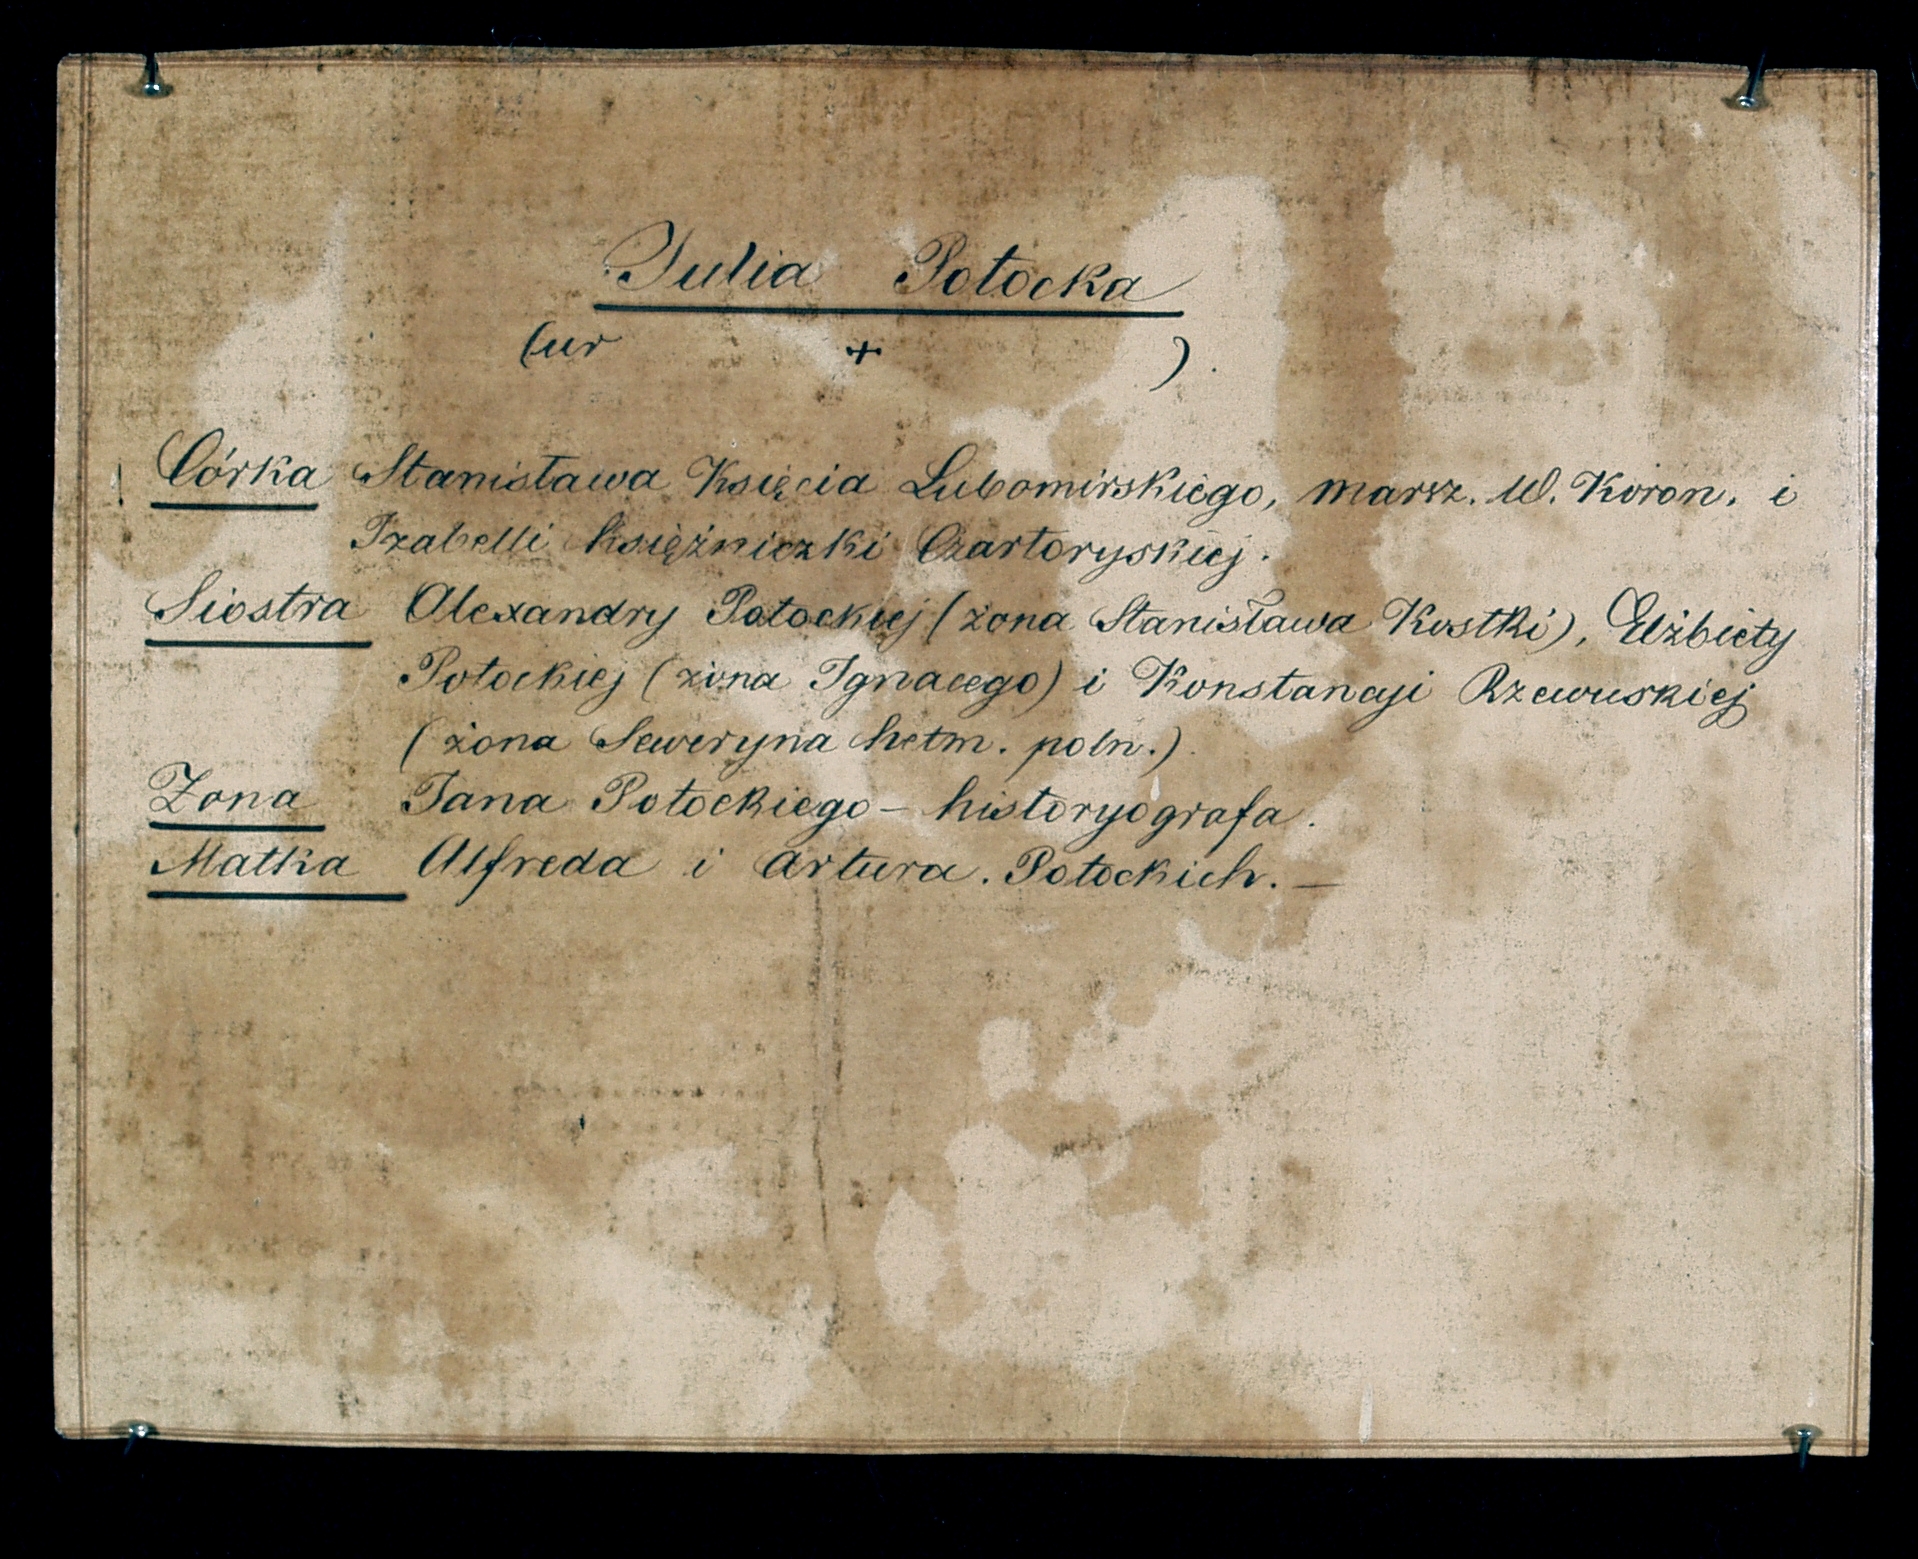 Julia Potocka
(ur + ).
Córka Stanisława Księcia Lubomirskiego, marsz. W. Koron. i
Izabelli księżniczki Czartoryskiej.
Siostra Alexandry Potockiej (żona Stanisława Kostki), Elżbiety
Potockiej (żona Ignacego) i Konstancji Rzewuskiej
(żona Seweryna hetm. poln.).
Żona Jana Potockiego – historyografa.
Matka Alfreda i Artura. Potockich. —